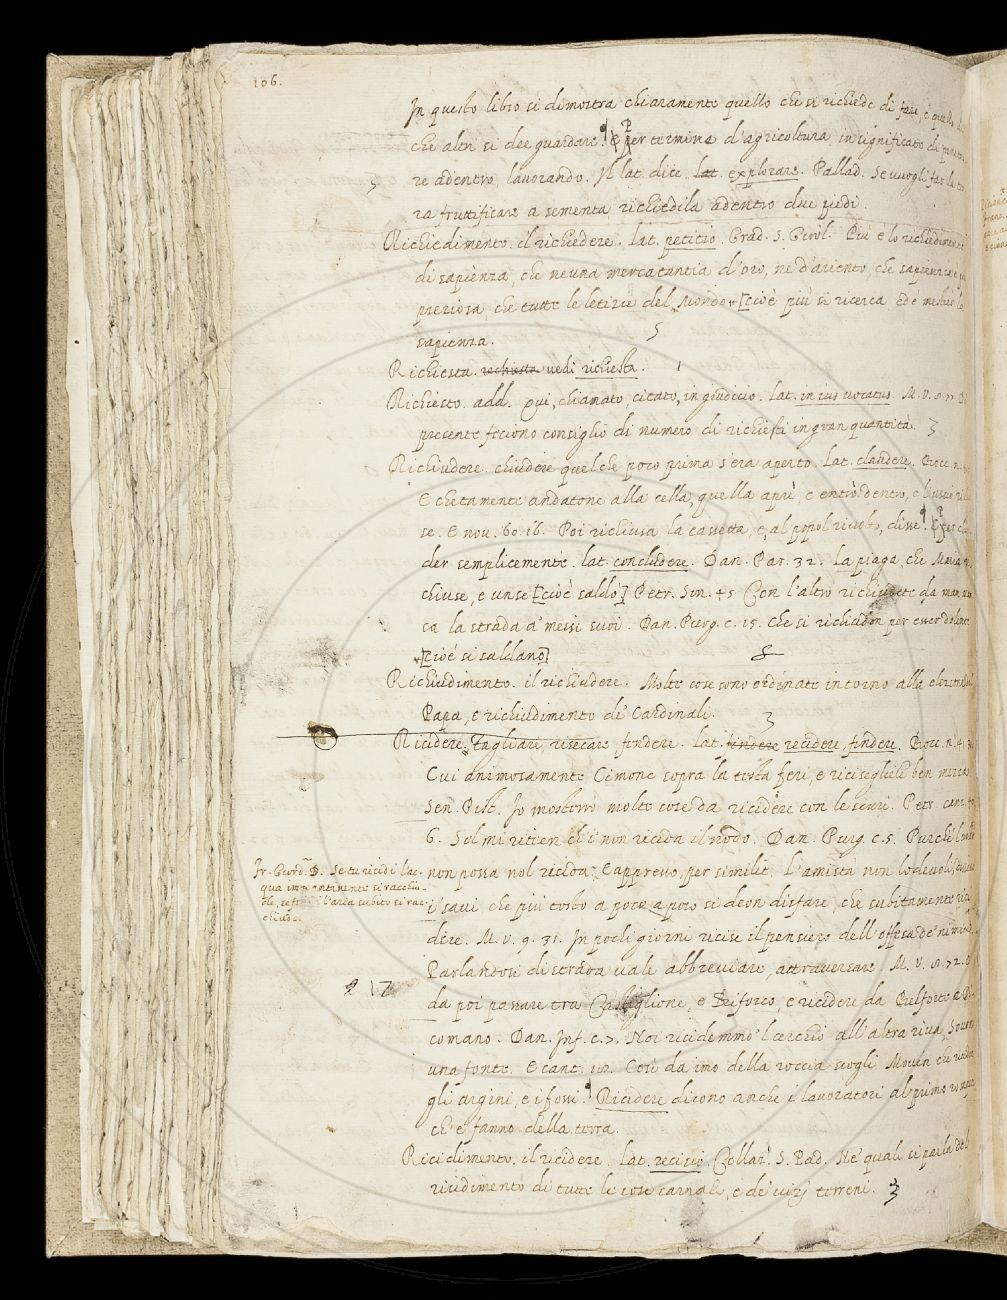 106.
In questo libro si dimostra chiaramente quello che si richiede di fare, e quello
che altri si dee guardare. E per termine d'agricoltura, in significato di
re adentro lavorando. Il lat. dice lat. explorare. Pallad. Se vuogli far la
ra fruttificare a sementa richiedila adentro due piedi.
Richiedimento. il richiedere. Lat. peticio. Grad. S. Girol. Più è lo richiedimento
di sapienza, che neuna mercatantia d'oro, ne d'ariento, che sapienza è
preziosa, che tutte le letizie del Mondo [cioè più si ricerca ed è
sapienza.
Richiesta. richiesta vedi richiesta.
Richiesto. add. Qui, chiamato, citato, in giudicio. Lat. in ius vocatus. M. V. 8. 7
presente feciono consiglio di numero di richiesti in gran quantità.
Richiudere. chiudere quel che poco prima s'era aperto. Lat. claudere. Bocc. n.
E chetamente andatone alla cella, quella aprì, e entrò dentro, e l'uscio
se. E nov. 60. 16. Poi richiusa la cassetta, e al popol rivolto, disse. E per
der semplicemente. lat. concludere. Dan. Par. 32. La piaga, che Maria
chiuse, e unse [cioè saldò] Petr. Son. 45 Con l'altro richiudete da man
ca la strada a' messi suoi. Dan. Purg. c. 15. Che si richiudon per esser dolente
[cioè si saldano]
Richiudimento. il richiudere. Molte cose sono ordinate intorno alla elezione
Papa, e richiudimento de' Cardinali.
Ricidere. Tagliare, risecare fendere. Lat. findere recidere, findere. Bocc. n. 41
Cui animosamente Cimone sopra la testa ferì, e riciseglieli ben mezza
Sen. Pist. Io mosterrò molte cose da ricidere con le scuri. Petr. canz.
6. Sol mi ritien ch'i non recida il nodo. Dan. Purg. c. 5. Purchè'l
non possa nol ricida. E appresso, per similit. L'amistà non lodevoli, dicono
i savi che più tosto a poco a poco si deon disfare, che subitamente
dere. M. V. 9. 31. In pochi giorni ricise il pensiero dell'offesa de' nimici.
Parlandosi di strada vale abbreviare, attraversare M. V. 8. 72.
da poi passare tra Castiglione, e Biforco e ricidere da Belforte a
comano. Dan. Inf. c. 7. Noi ricidemmo 'l cerchio all'altra riva, Sovra
una fonte. E cant. 18. Così da imo della roccia scogli Movien che
gli argini, e i fossi. Ricidere dicono anche i lavoratori al primo
ch'e' fanno della terra.
Ricidimento. il ricidere. Lat. recisio. Collaz. S. Pad. Ne' quali si parla del
ricidimento di tutte le cose carnali, e de' vizj terreni.
Fr. Giord. D. Se tu ricidi l'ac-
qua immantinente si racchiu-
de, l'aria subito si rac-
chiude.